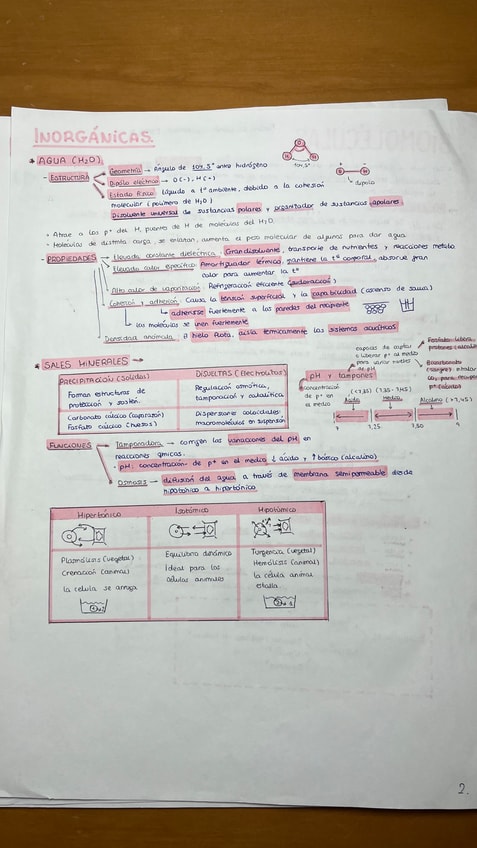 INORGÁNICAS.
* AGUA (H₂O)
- ESTRUCTURA
Geometría → Ángulo de 104,5° entre hidrógeno
Dipolo eléctrico → O(-), H(+)
Estado físico Líquido a tº ambiente, debido a la cohesión
molecular (polímero de H₂O)
Disolvente universal de sustancias polares y precipitador de sustancias apolares.
O
H H
104,5°
dipolo
+ Atrae a los pº del H, puentes de H de moléculas del H₂O.
+ Moléculas de distinta carga, se enlazan, aumenta el peso molecular de algunos para dar agua
- PROPIEDADES
Elevada constante dieléctrica: Gran disolvente, transporte de nutrientes y reacciones metabo
Elevado calor específico: Amortiguador térmico, mantiene la tº corporal, absorbe gran
calor para aumentar la tº
Alto calor de vaporización: Refrigeración eficiente (sudoración)
Cohesión y adhesión: Causa la tensión superficial y la capilaridad (ascenso de savia)
adherirse fuertemente a las paredes del recipiente
las moléculas se unen fuertemente
Densidad anómala: El hielo flota, aísla térmicamente los sistemas acuáticos
* SALES MINERALES →
PRECIPITACIÓN (Sólidas)
DISUELTAS (Electrolitos)
Forman estructuras de
protección y sostén.
Regulación osmótica,
tamponación y catalítica
Carbonato cálcico (caparazón)
Fosfato cálcico (huesos)
Dispersiones coloidales
macromoléculas en suspensión
capaces de captar
o liberar pº al medio
para variar niveles
de pH
Fosfato: libera
Bicarbonato
(sangre)
pH y tampones
concentración
de pº en
el medio
(<7,35) (7,35 - 7,45)
Ácido Medio Alcalino (>7,45)
- FUNCIONES
Tamponadora → corrigen las variaciones del pH en
reacciones químicas.
· pH: concentración de pº en el medio ↓ ácido y ↑ básico (alcalino)
Ósmosis → difusión del agua a través de membrana semipermeable desde
hipotónico a hipertónico.
Hipertónico Isotónico Hipotónico
Plasmólisis (vegetal)
Crenación (animal)
La célula se arruga
Equilibrio dinámico
Ideal para las
células animales
Turgencia (vegetal)
Hemólisis (animal)
la célula animal
estalla
2.